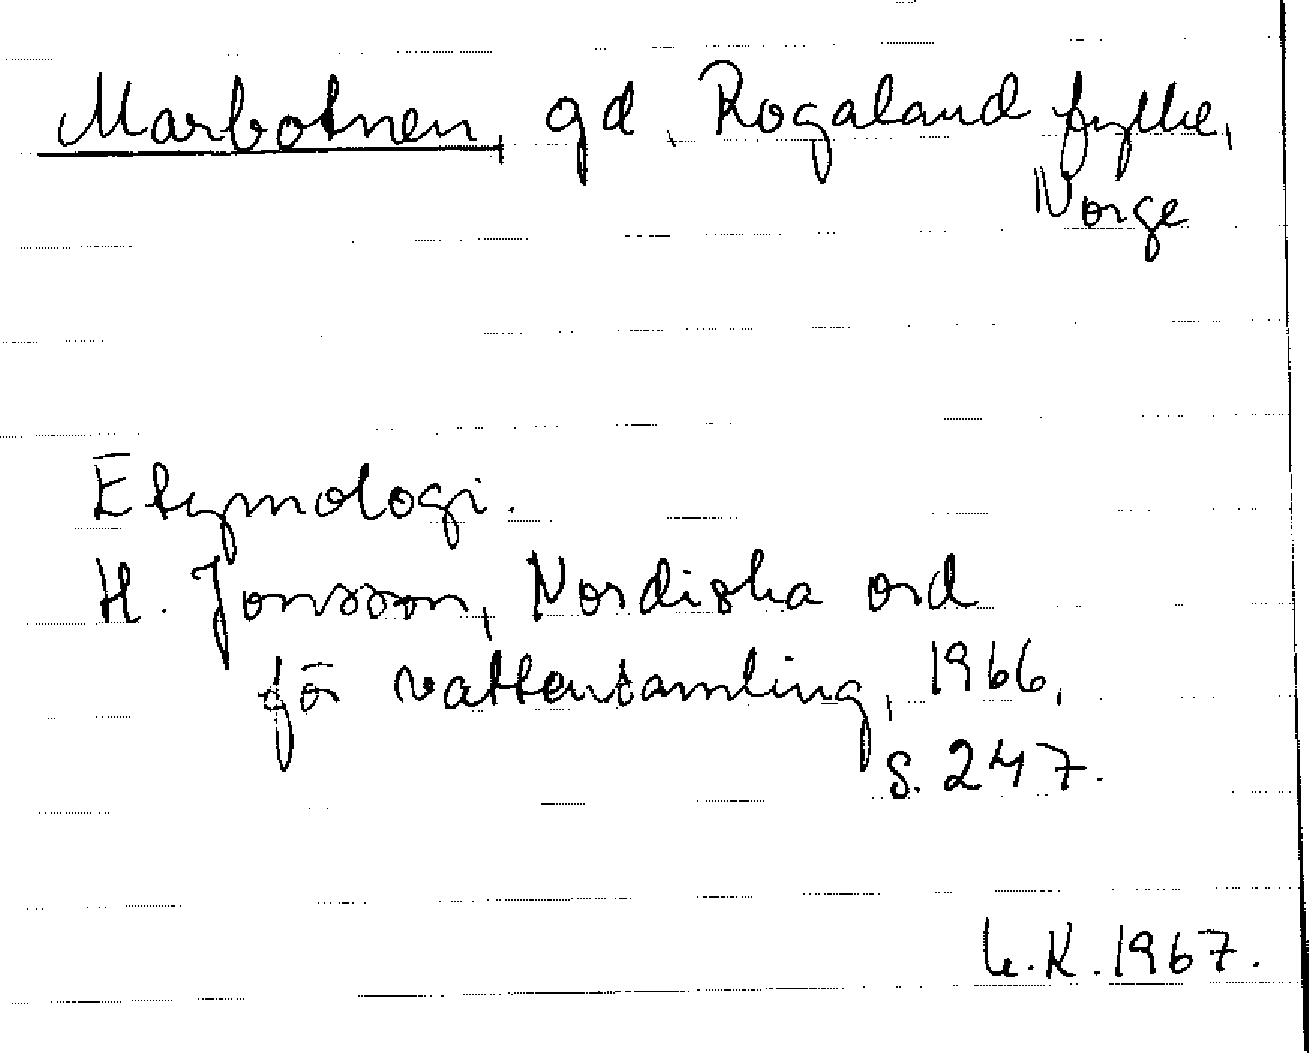 Marbotnen, gd, Rogaland fylke,
Norge
Etymologi.
H. Jonsson, Nordiska ord
för vattensamling, 1966,
s. 247.
K. 1967.